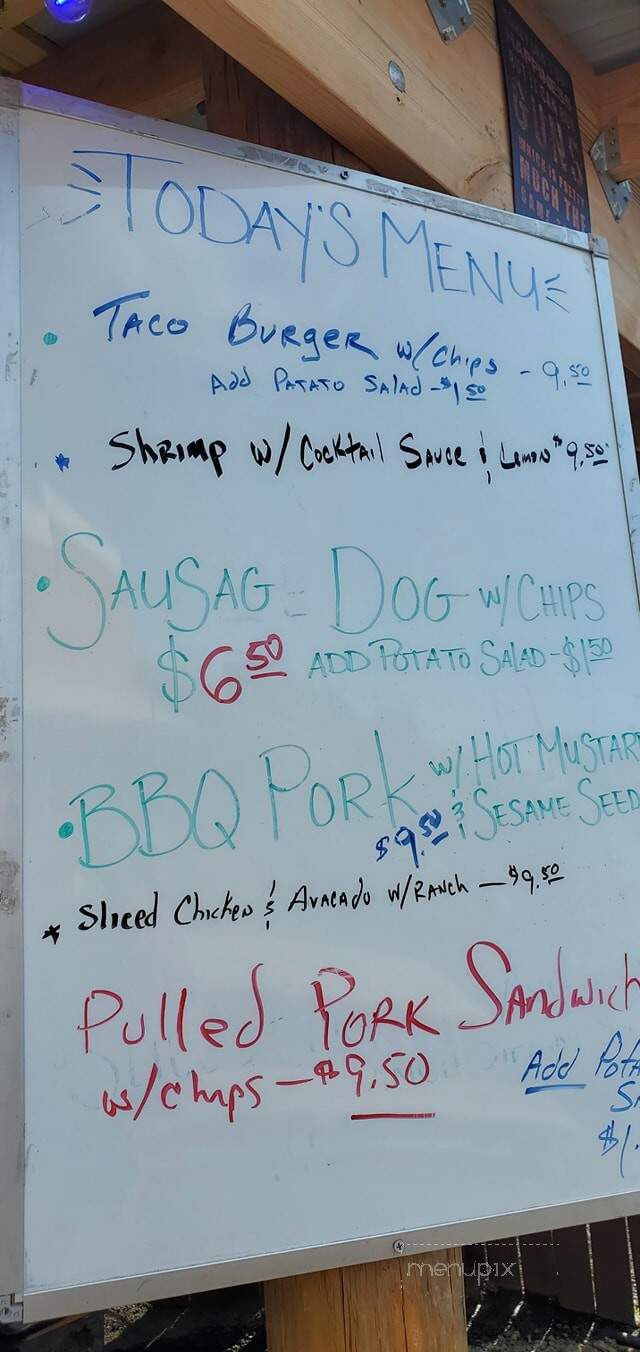 TODAY'S MENU
TACO BURGER w/Chips - 9.50
ADD PATATO SALAD - $1.50
Shrimp w/ Cocktail Sauce & Lemon $9.50
SAUSAG DOG w/CHIPS
$6.50 ADD POTATO SALAD - $1.50
BBQ PORK w/ HOT MUSTARD
$9.50 & SESAME SEED
Sliced Chicken & Avacado w/RANCH - $9.50
Pulled PORK Sandwich
w/chips - $9.50
Add Pota
$1.
MUCH THE
menupix